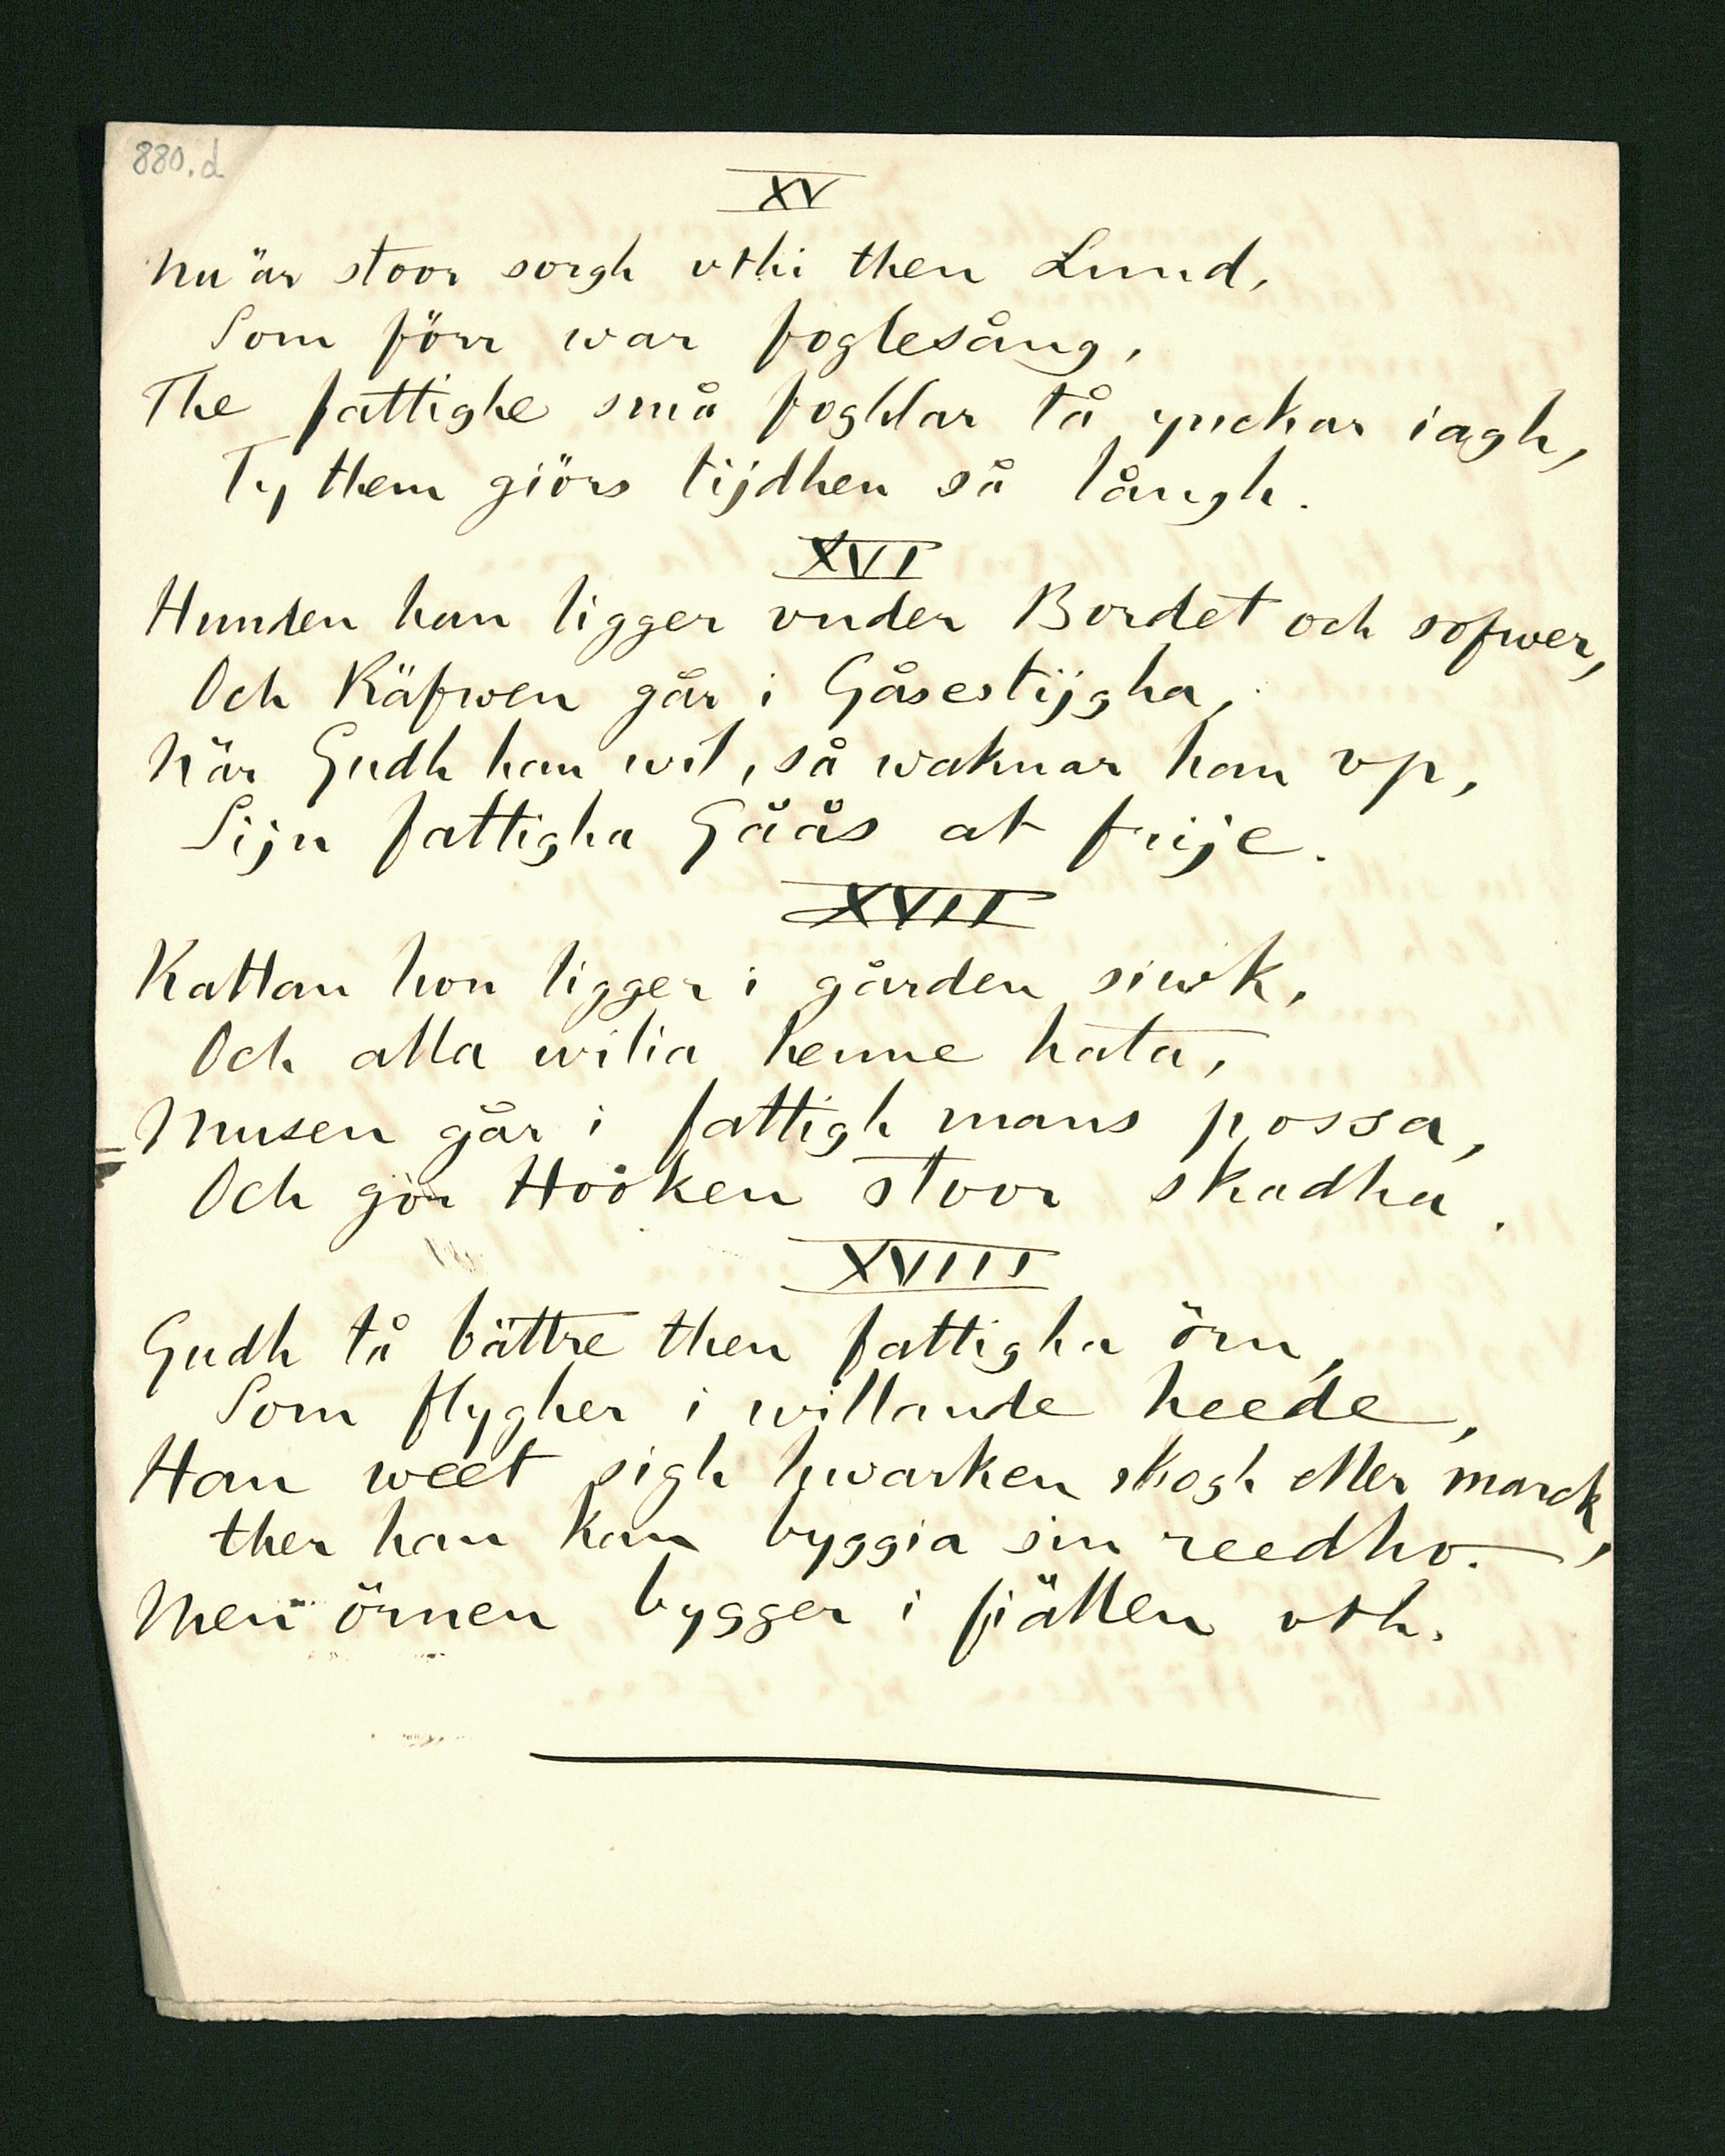 880.d
XV
Nu är stoor sorgh vthi then Lund,
Som förr war foglesång,
The fattighe små foghlar tå ynckar iagh,
Ty them giörs tijdhen så långh.
XVI
Hunden han ligger vnder Bordet och sofwer,
Och Räfwen går i Gåsestijgha,
När Gudh han wil, så waknar han vp,
Sijn fattigha Gåås at frije.
XVII
Kattan hon ligger i gården siwk,
Och alla wilia henne hata,
Musen går i fattigh mans possa,
Och gör Hööken stoor skadha.
XVIII
Gudh tå bättre then fattigha örn,
Som flygher i willande heede,
Han weet sigh hwarken skogh eller marck,
ther han kan byggia sin reedho.
Men örnen bygger i fjällen vth.